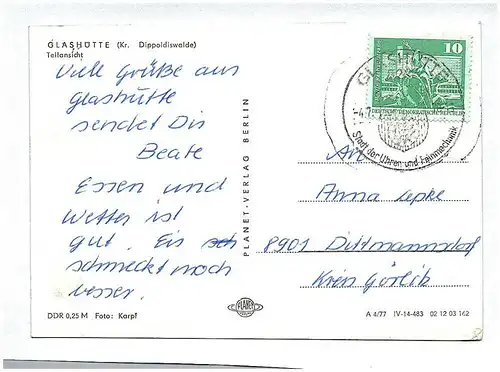 GLASHÜTTE (Kr. Dippoldiswalde)
Teilansicht
Viele Grüße aus
Glashütte
sendet Dir
Beate
Essen und
Wetter ist
gut. Eis
schmeckt noch
besser.
DDR 0,25 M Foto: Karpf
PLANET-VERLAG BERLIN
PLANET
10
DEUTSCHE DEMOKRATISCHE REPUBLIK
GLASHÜTTE
Stadt der Uhren und Feinmechanik
An
Anna Lepke
8901 Dittmannsdorf
Kreis Görlitz
A 4/77 IV-14-483 02 12 03 162